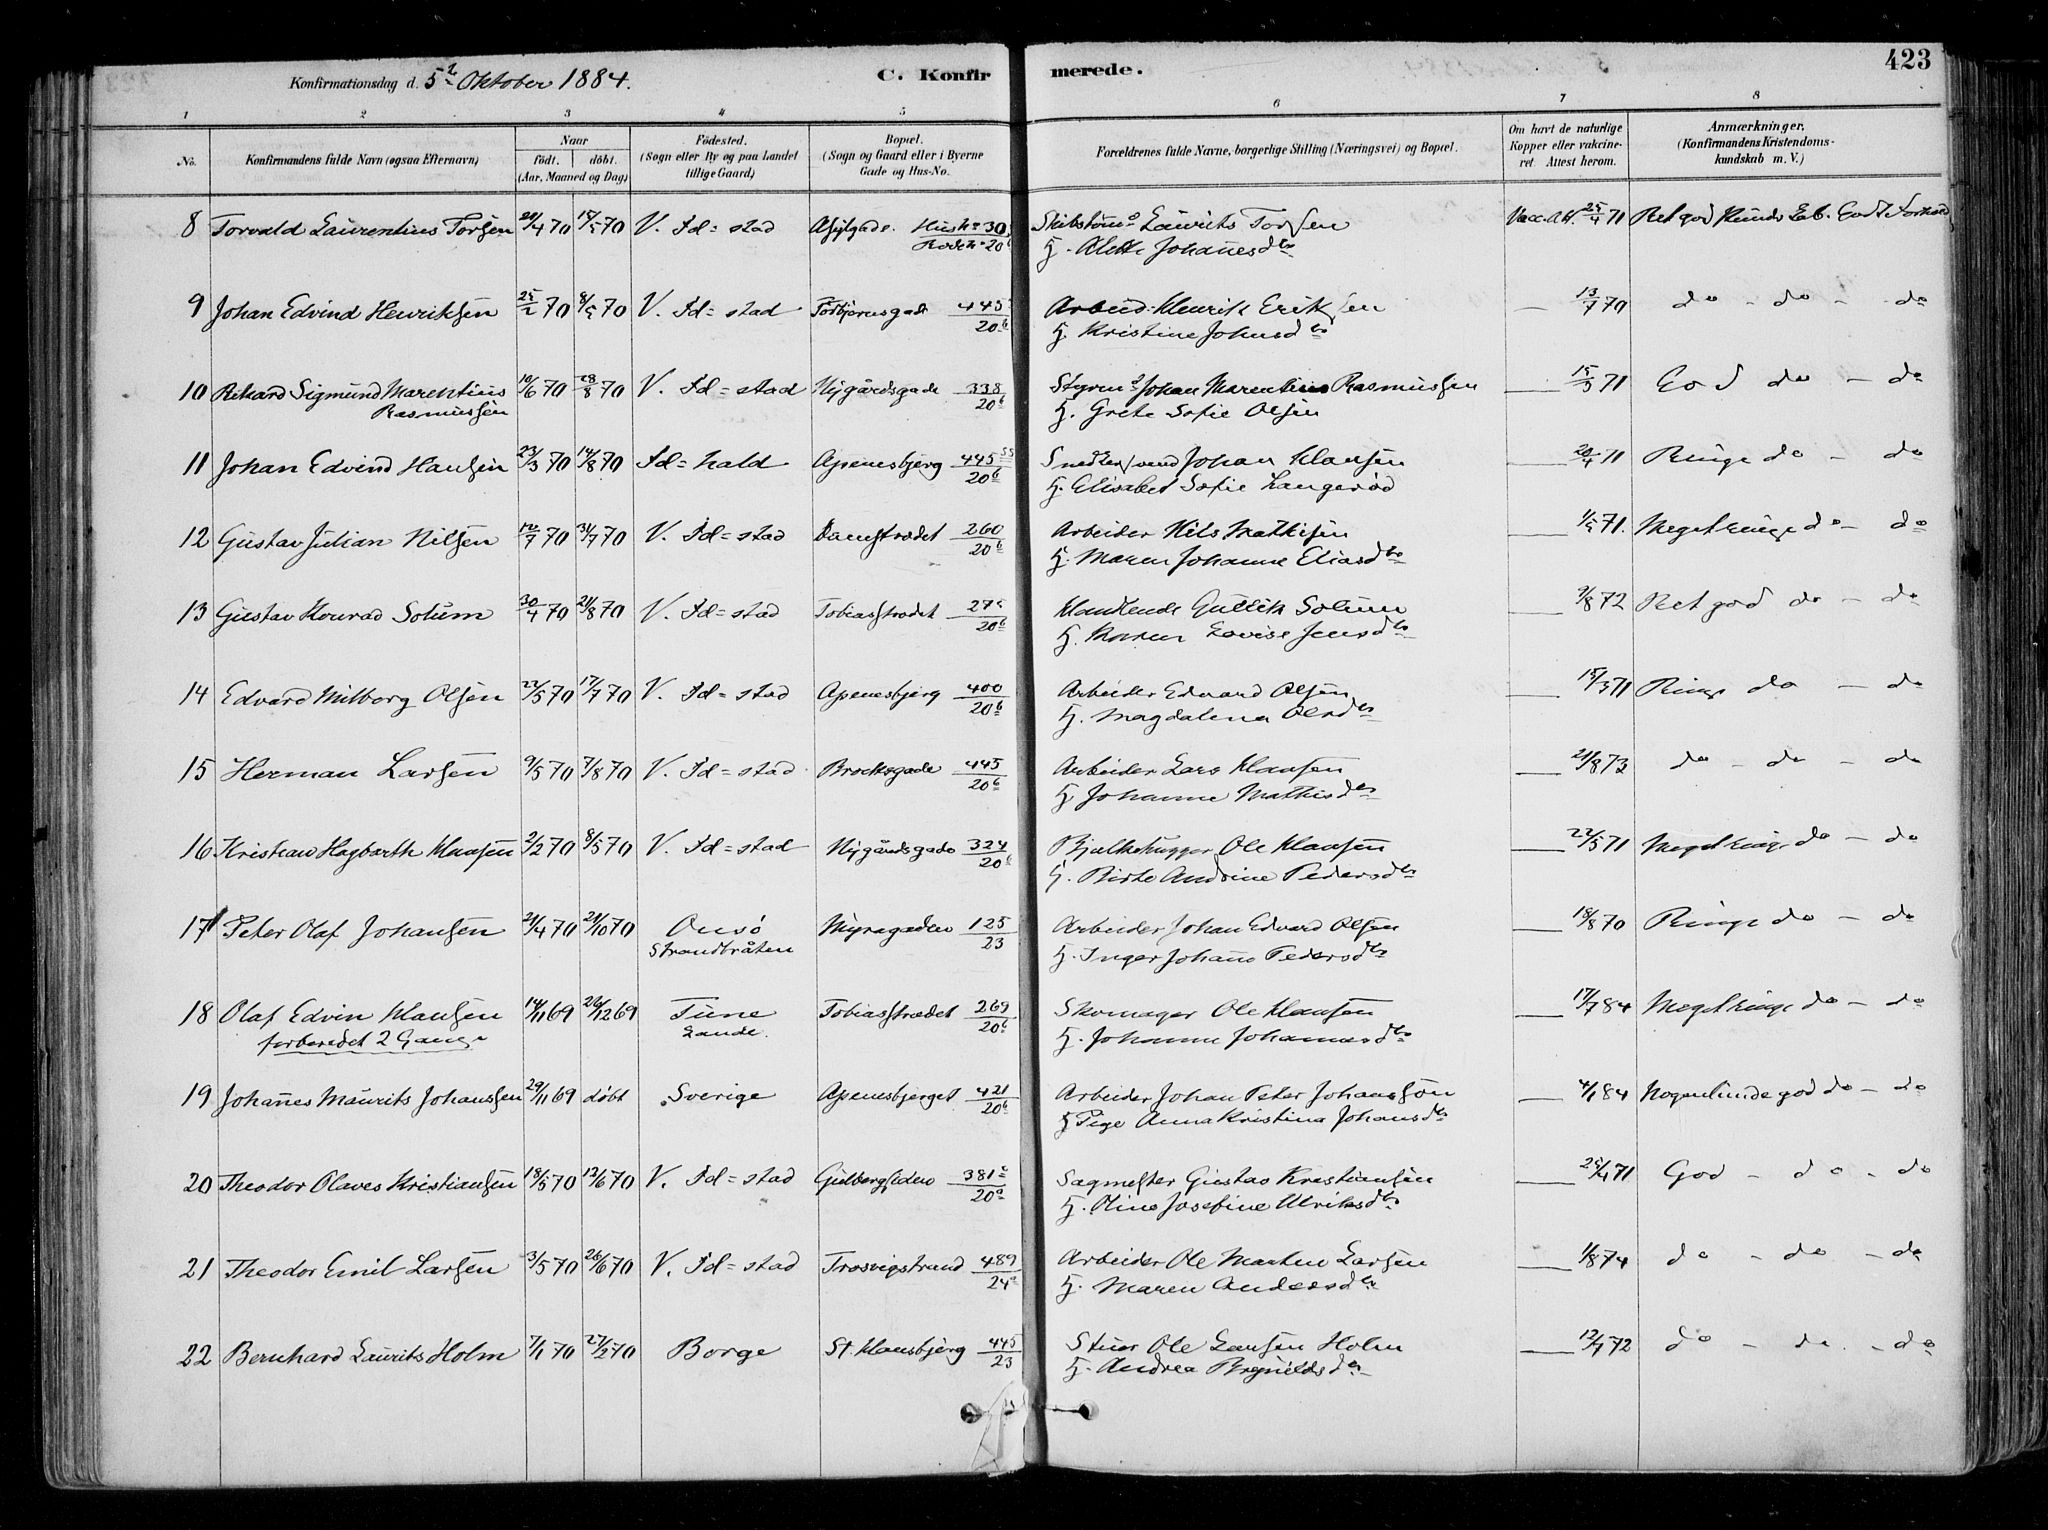 Konfirmationsdag d. 5te Oktober 1884. C. Konfirmerede. 423
1 2 3 4 5 6 7 8
No. Konfirmandens fulde Navn (ogsaa Efternavn) Naar født. døbt. (Aar, Maaned og Dag) Fødested. (Sogn eller By og paa Landet tillige Gaard) Bopæl. (Sogn og Gaard eller i Byerne Gade og Hus-No. Forældrenes fulde Navne, borgerlige Stilling (Næringsvei) og Bopæl. Om havt de naturlige Kopper eller vaccineret. Attest herom. Anmærkninger. (Konfirmandens Kristendomskundskab m. V.)
8 Torvald Laurentius Torsen 20/4 70 15/5 70 V. Fd=stad Asylgade. Husn 30 Skibstømr Laurits Torsen Vacc. Att. 25/4 71 Ret god Kunds.
Rode 20b Hj. Alette Johannesdtr
9 Johan Edvind Henriksen 25/2 70 8/5 70 V. Fd=stad Torbjørnsgade 445/20b Arbeid. Henrik Eriksen — 13/7 70 do - do - do
Hj. Kristine Johnsdtr
10 Rikard Sigmund Marentius 10/6 70 28/8 70 V. Fd=stad Nygårdsgade 338/20b Styrmd Johan Marentius Rasmussen — 15/3 71 God do - do
Rasmussen Hj. Grete Sofie Olsen
11 Johan Edvind Hansen 23/3 70 14/8 70 Fd=hald Apenesbjerg 445/20b Snedkersvend Johan Hansen — 20/4 71 Ringe do - do
Hj. Elisabet Sofie Langerød
12 Gustav Julian Nilsen 12/7 70 31/7 70 V. Fd=stad Damstrædet 260/20b Arbeider Nils Mathisen — 1/5 71. Meget ringe do - do
Hj. Maren Johanne Eliasdtr
13 Gustav Konrad Solum 30/4 70 21/8 70 V. Fd=stad Tobiasstrædet 275/20b Handlende Gullik Solum — 9/8 72 Ret god do - do
Hj. Maren Lovise Jensdtr
14 Edvard Milborg Olsen 22/5 70 17/7 70 V. Fd=stad Apenesbjerg 400/20b Arbeider Edvard Olsen — 15/3 71 Ringe do - do
Hj. Magdalena Olsdtr
15 Herman Larsen 9/5 70 7/8 70 V. Fd=stad Brochsgade 445/20b Arbeider Lars Hansen — 21/8 73 do - do - do
Hj Johanne Mathisdtr
16 Kristian Hagbarth Hansen 2/2 70 8/5 70 V. Fd=stad Nygårdsgade 324/20b Bjælkehugger Ole Hansen — 22/5 71 Meget ringe do - do
Hj. Birte Andrine Pedersdtr
17 Peter Olaf Johansen 21/4 70 21/10 70 Onsø Myragaden 125/23 Arbeider Johan Edvard Olsen — 18/8 70 Ringe do - do
Strandbråten Hj. Inger Johanne Pedersdtr
18 Olaf Edvin Hansen 14/11 69 26/12 69 Tune Tobiasstrædet 269/20b Skomager Ole Hansen — 17/7 84 Meget ringe do - do
forberedet 2 Gange Lande. Hj. Johanne Johannesdtr
19 Johanes Maurits Johanssen 29/11 69 døbt Sverige Apenesbjerget 421/20b Arbeider Johan Peter Johansson — 4/1 84 Nogenlunde god do - do
Hj Pige Anna Kristina Johansdtr
20 Theodor Olaves Kristiansen 18/5 70 12/6 70 V. Fd=stad Gulbergsiden 381c/20a Sagmester Gustav Kristiansen — 25/4 71 God - do - do
Hj. Oline Josefine Ulriksdtr
21 Theodor Emil Larsen 3/5 70 26/6 70 V. Fd=stad Trosvigstrand 489/24a Arbeider Ole Martin Larsen — 1/8 74 do - do - do
Hj. Maren Andersdtr
22 Bernhard Laurits Holm 7/1 70 27/2 70 Borge St. Hansbjerg 445/23 Stuer Ole Larsen Holm — 12/7 72 do - do - do
Hj. Andrea Brynildsdr